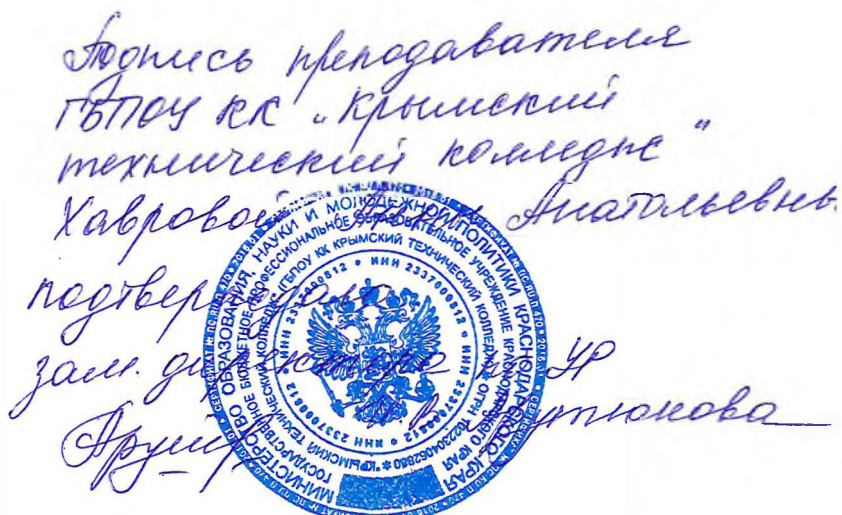 Подпись преподавателя
ГБПОУ КК "Крымский
технический колледж"
Хавровой Анатольевны
подтверждаю
зам. директора по УР
МИНИСТЕРСТВО ОБРАЗОВАНИЯ, НАУКИ И МОЛОДЕЖНОЙ ПОЛИТИКИ КРАСНОДАРСКОГО КРАЯ
ГОСУДАРСТВЕННОЕ БЮДЖЕТНОЕ ПРОФЕССИОНАЛЬНОЕ ОБРАЗОВАТЕЛЬНОЕ УЧРЕЖДЕНИЕ КРАСНОДАРСКОГО КРАЯ
"КРЫМСКИЙ ТЕХНИЧЕСКИЙ КОЛЛЕДЖ" (ГБПОУ КК КРЫМСКИЙ ТЕХНИЧЕСКИЙ КОЛЛЕДЖ) ОГРН 1022304062880
ИНН 2337000812 * ИНН 2337000812 * ИНН 2337000812 * ИНН 2337000812